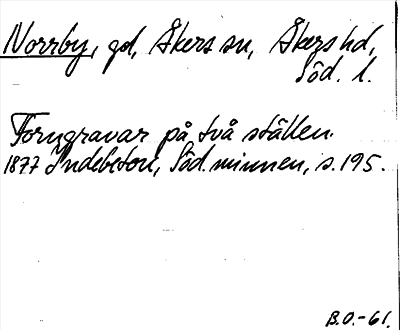 Norrby, gd, Åkers sn, Åkers hd,
Söd. l.
Forngravar på två ställen.
1877 Indebetou, Söd. minnen, s. 195.
B.O.-61.